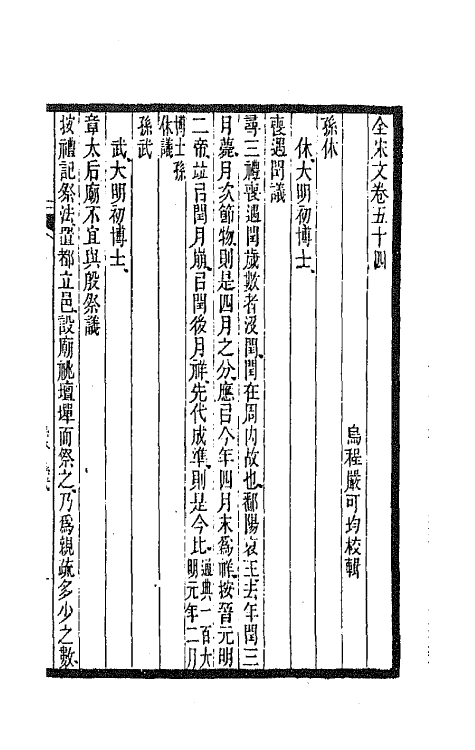 全宋文卷五十四
烏程嚴可均校輯
孫休
休大明初博士
喪遇閏議
尋三禮喪遇閏歲數者沒閏閏在周內故也鄱陽哀王去年閏三
月薨月次節物則是四月之分應㠯今年四月末為祥按晉元明
二帝竝㠯閏月崩㠯閏後月祥先代成準則是今比通典一百大明元年二月
博士孫休議
孫武
武大明初博士
章太后廟不宜與殷祭議
按禮記祭法置都立邑設廟祧壇墠而祭之乃為親疏多少之數